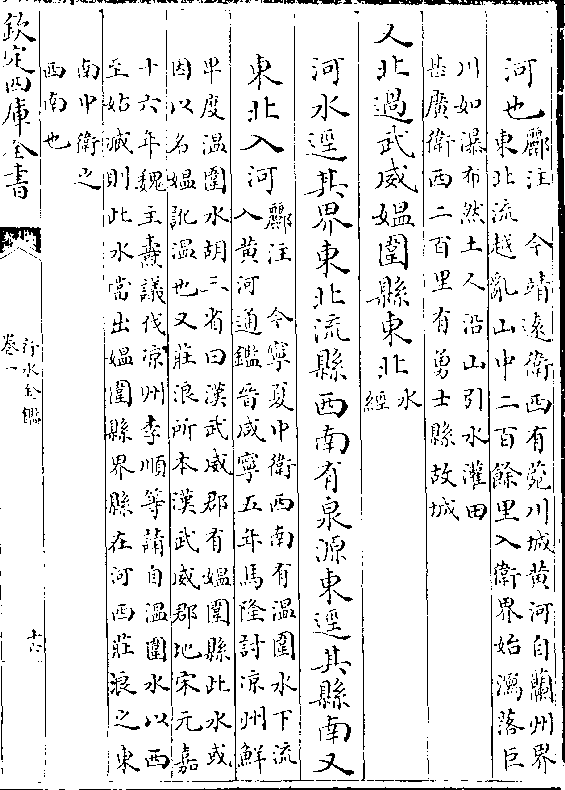 河也酈注 今靖遠衛西有菀川城黃河自蘭州界
東北流越亂山中二百餘里入衛界始瀉落巨
川如瀑布然土人沿山引水灌田
甚廣衛西二百里有勇士縣故城
又北過武威媼圍縣東北水經
河水逕其界東北流縣西南有泉源東逕其縣南又
東北入河酈注 今寧夏中衛西南有溫圍水下流
入黃河通鑑晉咸寧五年馬隆討涼州鮮
卑度溫圍水胡三省曰漢武威郡有媼圍縣此水或
因以名媼訛溫也又莊浪所本漢武威郡地宋元嘉
十六年魏主燾議伐涼州李順等請自溫圍水以西
至姑臧則此水當出媼圍縣界縣在河西莊浪之東
南中衛之
西南也
欽定四庫全書
行水金鑑
卷一
十六